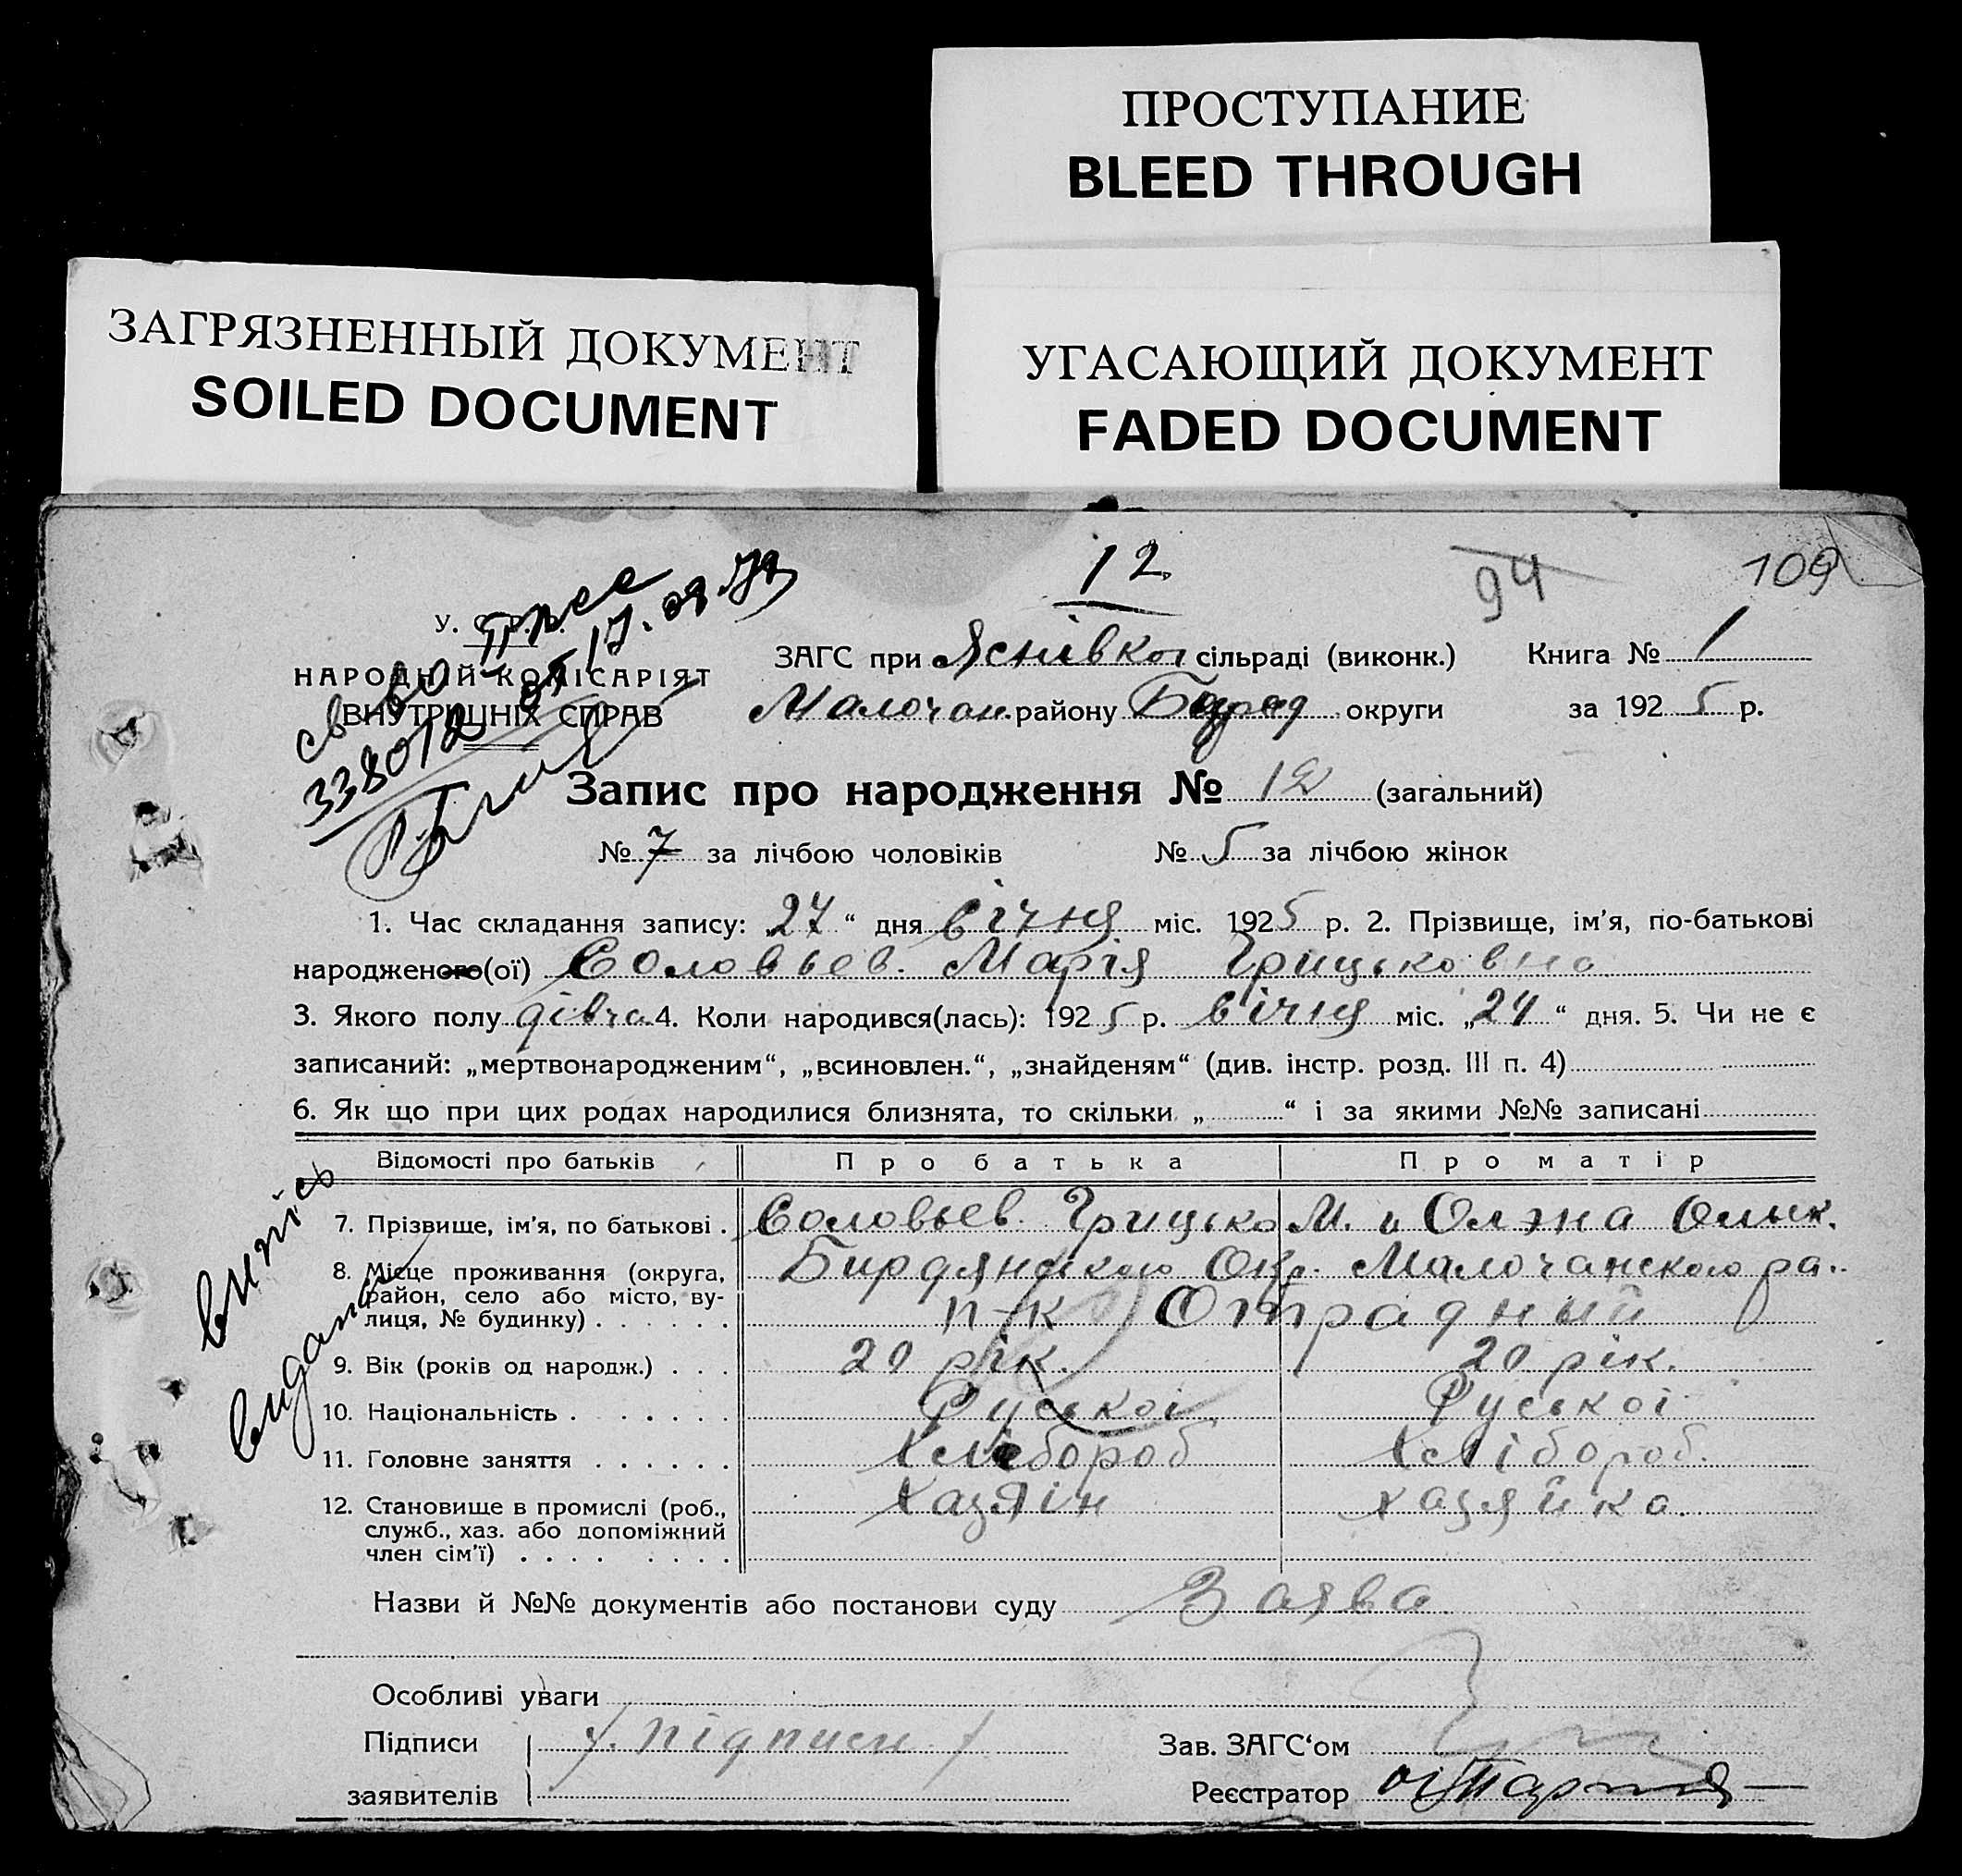 ПРОСТУПАНИЕ
BLEED THROUGH
ЗАГРЯЗНЕННЫЙ ДОКУМЕНТ
SOILED DOCUMENT
УГАСАЮЩИЙ ДОКУМЕНТ
FADED DOCUMENT
12
94
109
У. С. Р. Р.
НАРОДНІЙ КОМІСАРІЯТ
ВНУТРІШНІХ СПРАВ
338012 от 17.08.
ЗАГС при Яснівкої сільраді (виконк.) Книга № 1
Малочан. району округи за 1925 р.
Запис про народження № 12 (загальний)
№ 7 за лічбою чоловіків № 5 за лічбою жінок
1. Час складання запису: 27 “ дня січня міс. 1925 р. 2. Прізвище, ім’я, по-батькові
народженого(ої) Соловьев. Марія Грицьковна
3. Якого полу дівча 4. Коли народився(лась): 1925 р. січня міс. „24“ дня. 5. Чи не є
записаний: „мертвонародженим“, „всиновлен.“, „знайденям“ (див. інстр. розд. III п. 4)
6. Як що при цих родах народилися близнята, то скільки „ “ і за якими №№ записані
Відомості про батьків Про батька Про матір
7. Прізвище, ім’я, по батькові . Соловьев Грицько М. и Олэна
8. Місце проживання (округа, Бирдянського Окр. Малочанского ра.
район, село або місто, ву-
лиця, № будинку) . . . . . . п-к Отрадный
9. Вік (років од народж.) . . . 20 рік. 20 рік.
10. Національність . . . . . . Руської Руської
11. Головне заняття . . . . . . Хлібороб Хлібороб.
12. Становище в промислі (роб., Хазяін хазяйка.
служб., хаз. або допоміжний
член сім’ї) . . . . . . . .
Назви й №№ документів або постанови суду Заява
Особливі уваги
Підписи /. підписи /
заявителів
Зав. ЗАГС‘ом
Реєстратор
випісь
видана